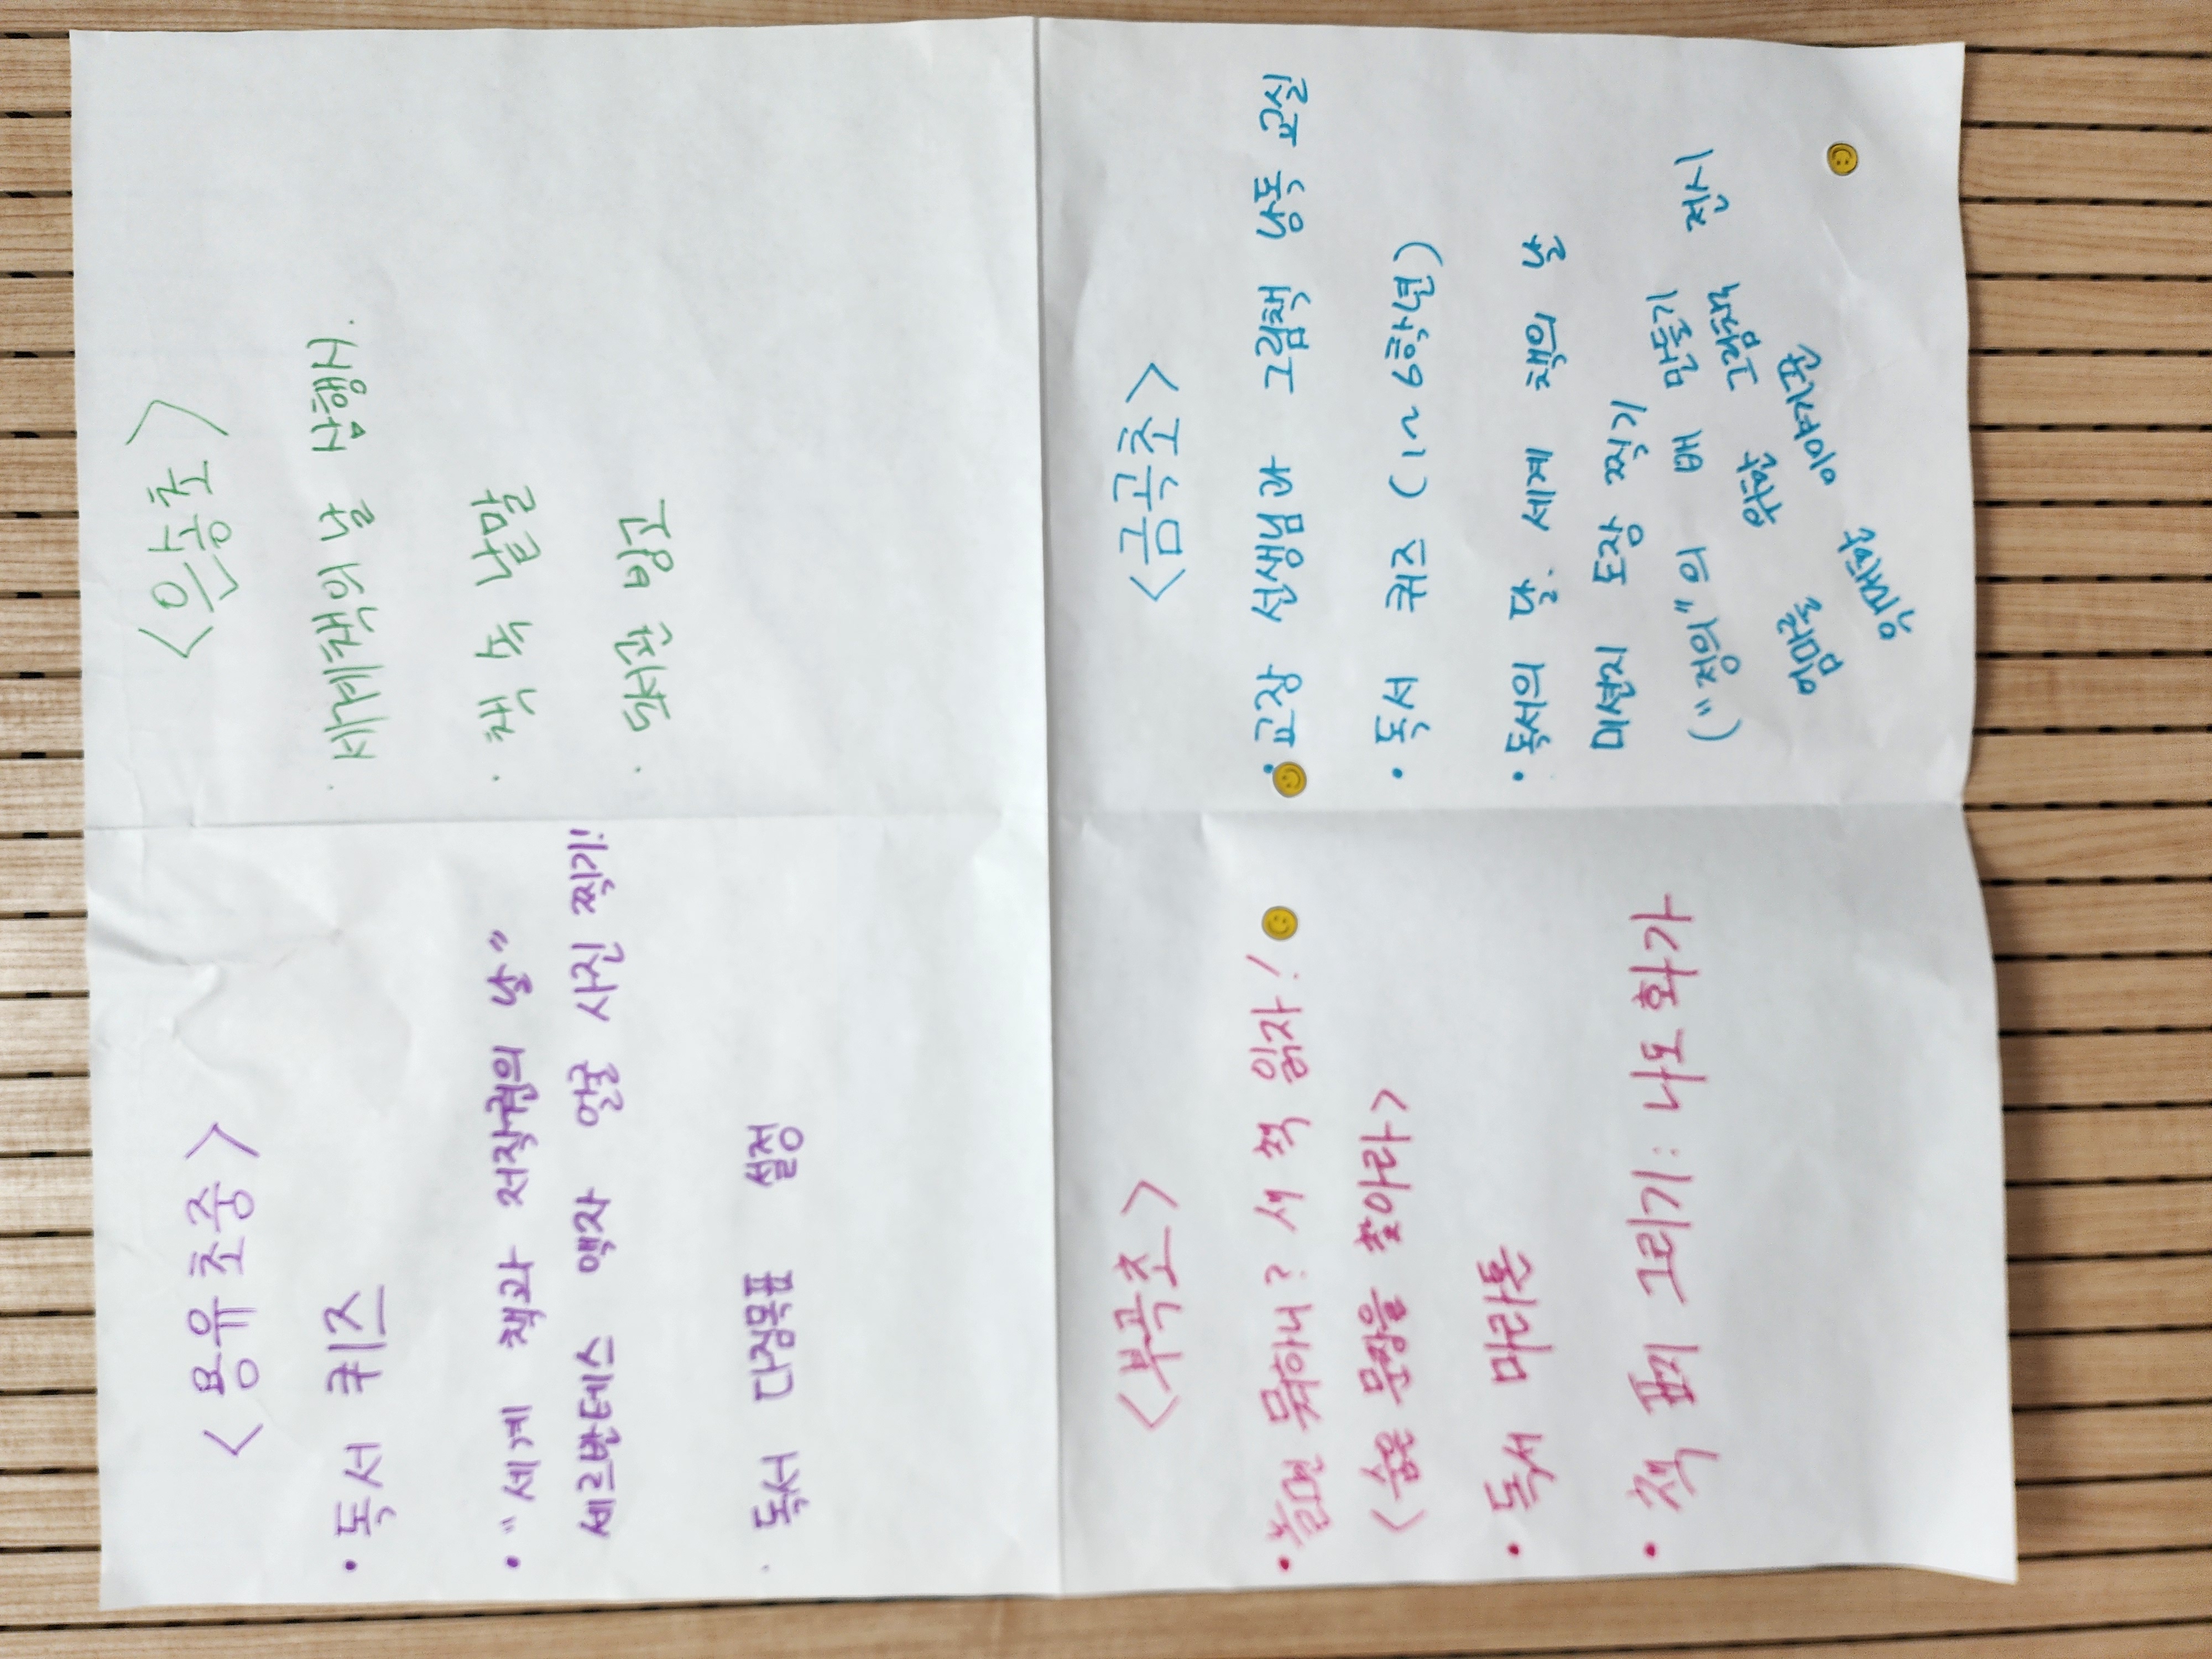 <용유초중>
• 독서 퀴즈
• "세계 책과 저작권의 날"
세르반테스 액자 얼굴 사진 찍기!
· 독서 다짐목표 설정
<은송초>
· 세계책의 날 삼행시.
· 책 속 낱말
· 독서관 빙고
<부곡초>
• 틈만 뭐하니? 서 쪽 읽자!
<숨은 문장을 찾아라>
• 독서 마라톤
• 책 표지 그리기: 나도 화가
<금곡초>
• 교장 선생님과 그림책 낭독 교실
• 독서 퀴즈 (1~6학년)
• 독서의 달. 세계 책의 날
미션지 도장 찍기
("정의"의 배 만들기
엄마를 위한 그림책 전시
위대한 이야기꾼